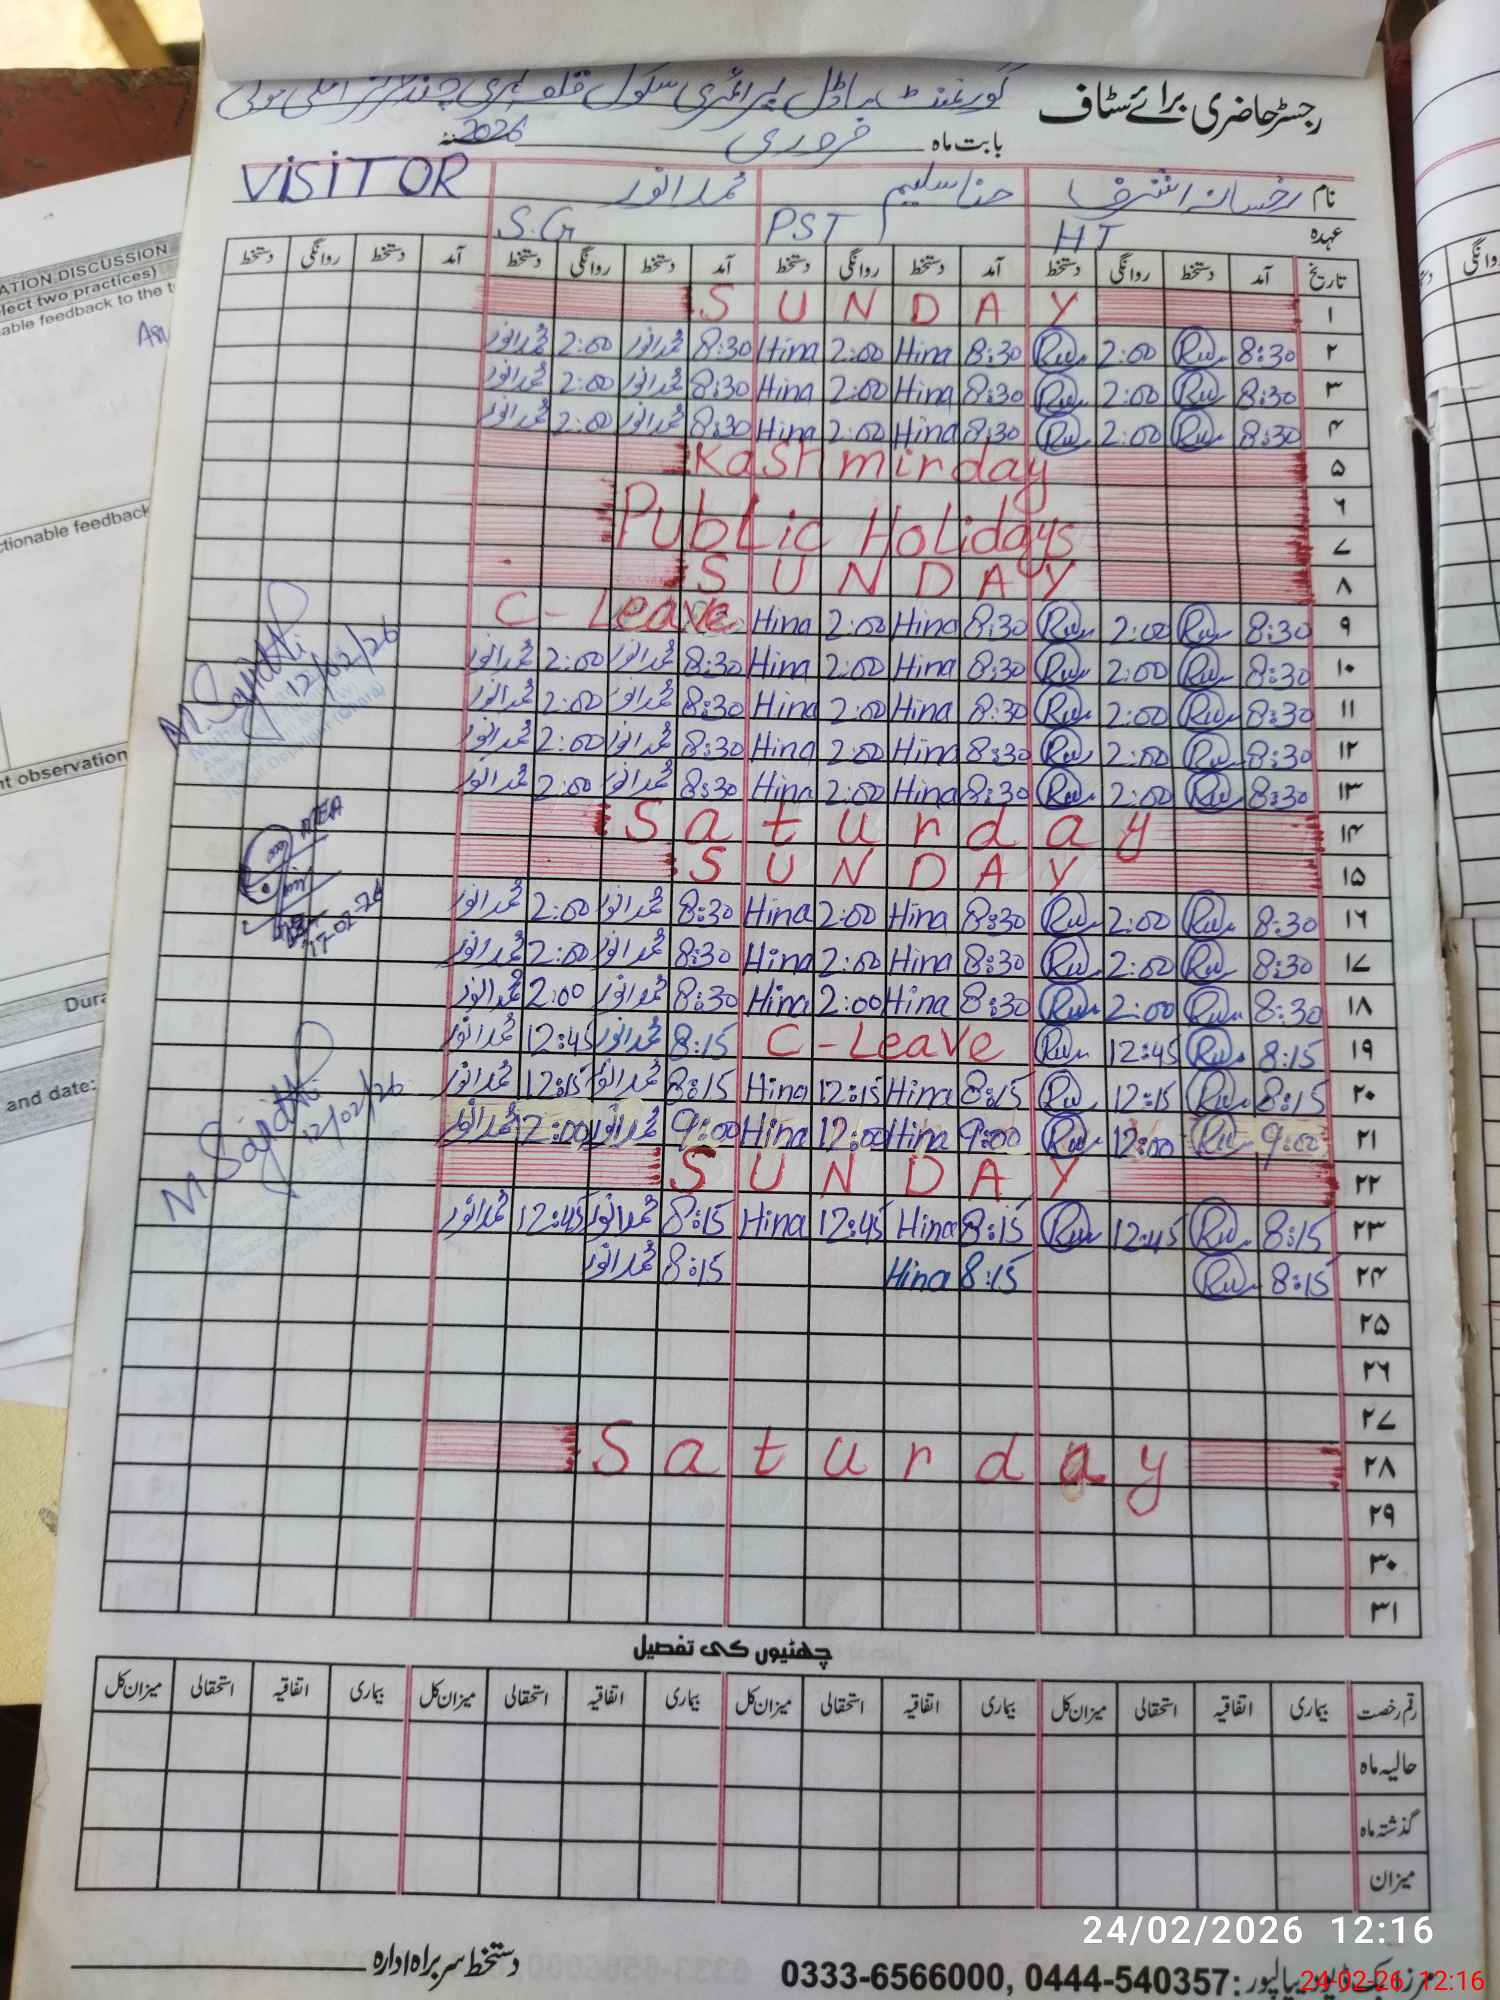 رجسٹر حاضری برائے سٹاف
گورنمنٹ ماڈل پرائمری سکول قلعہ
بابت ماہ فروری 2026
نام رخسانہ اشرف حنا سلیم محمد انور VISITOR
عہدہ HT PST S.G
تاریخ آمد دستخط روانگی دستخط آمد دستخط روانگی دستخط آمد دستخط روانگی دستخط آمد دستخط روانگی دستخط
۱ SUNDAY
۲ 8:30 2:00 8:30 Hina 2:00 Hina 8:30 محمد انور 2:00 محمد انور
۳ 8:30 2:00 8:30 Hina 2:00 Hina 8:30 محمد انور 2:00 محمد انور
۴ 8:30 2:00 8:30 Hina 2:00 Hina 8:30 محمد انور 2:00 محمد انور
۵ Kashmirday
۶
۷ Public Holidays
۸ SUNDAY
۹ 8:30 2:00 8:30 Hina 2:00 Hina C-Leave
۱۰ 8:30 2:00 8:30 Hina 2:00 Hina 8:30 محمد انور 2:00 محمد انور
۱۱ 8:30 2:00 8:30 Hina 2:00 Hina 8:30 محمد انور 2:00 محمد انور
۱۲ 8:30 2:00 8:30 Hina 2:00 Hina 8:30 محمد انور 2:00 محمد انور
۱۳ 8:30 2:00 8:30 Hina 2:00 Hina 8:30 محمد انور 2:00 محمد انور
۱۴ Saturday
۱۵ SUNDAY
۱۶ 8:30 2:00 8:30 Hina 2:00 Hina 8:30 محمد انور 2:00 محمد انور
۱۷ 8:30 2:00 8:30 Hina 2:00 Hina 8:30 محمد انور 2:00 محمد انور
۱۸ 8:30 2:00 8:30 Hina 2:00 Hina 8:30 محمد انور 2:00 محمد انور
۱۹ 8:15 12:45 C-Leave 8:15 محمد انور 12:45 محمد انور
۲۰ 8:15 12:15 8:15 Hina 12:15 Hina 8:15 محمد انور 12:15 محمد انور
۲۱ 9:00 12:00 9:00 Hina 12:00 Hina 9:00 محمد انور 12:00 محمد انور
۲۲ SUNDAY
۲۳ 8:15 12:45 8:15 Hina 12:45 Hina 8:15 محمد انور 12:45 محمد انور
۲۴ 8:15 8:15 Hina 8:15 محمد انور
۲۵
۲۶
۲۷
۲۸ Saturday
۲۹
۳۰
۳۱
M. Sajid
12/02/26
MEA
17-02-26
M. Sajid
12/02/26
چھٹیوں کی تفصیل
رقم رخصت بیماری اتفاقیہ استحقاقی میزان کل بیماری اتفاقیہ استحقاقی میزان کل بیماری اتفاقیہ استحقاقی میزان کل بیماری اتفاقیہ استحقاقی میزان کل
حالیہ ماہ
گذشتہ ماہ
میزان
دستخط سربراہ ادارہ
0333-6566000, 0444-540357:
24/02/2026 12:16
24-02-26, 12:16
ATION DISCUSSION
lect two practices)
able feedback to the t
ctionable feedback
nt observation
Dura
and date: